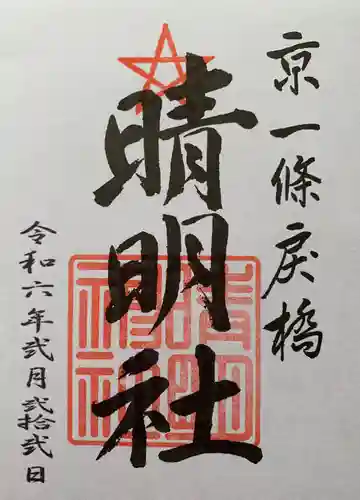 京一條戻橋
晴明社
令和六年弐月弐拾弐日
晴明
神社